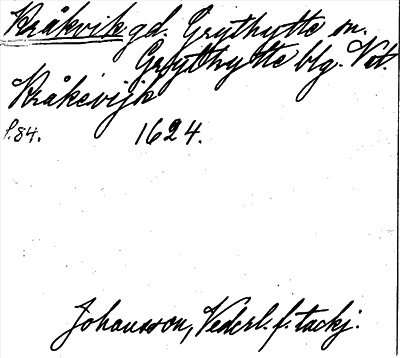 Kråkvik gd. Grythytte sn.
Grythytte blg. Vstm.
Kråkevijk
s. 84. 1624.
Johansson, Vederl. f. tackj.